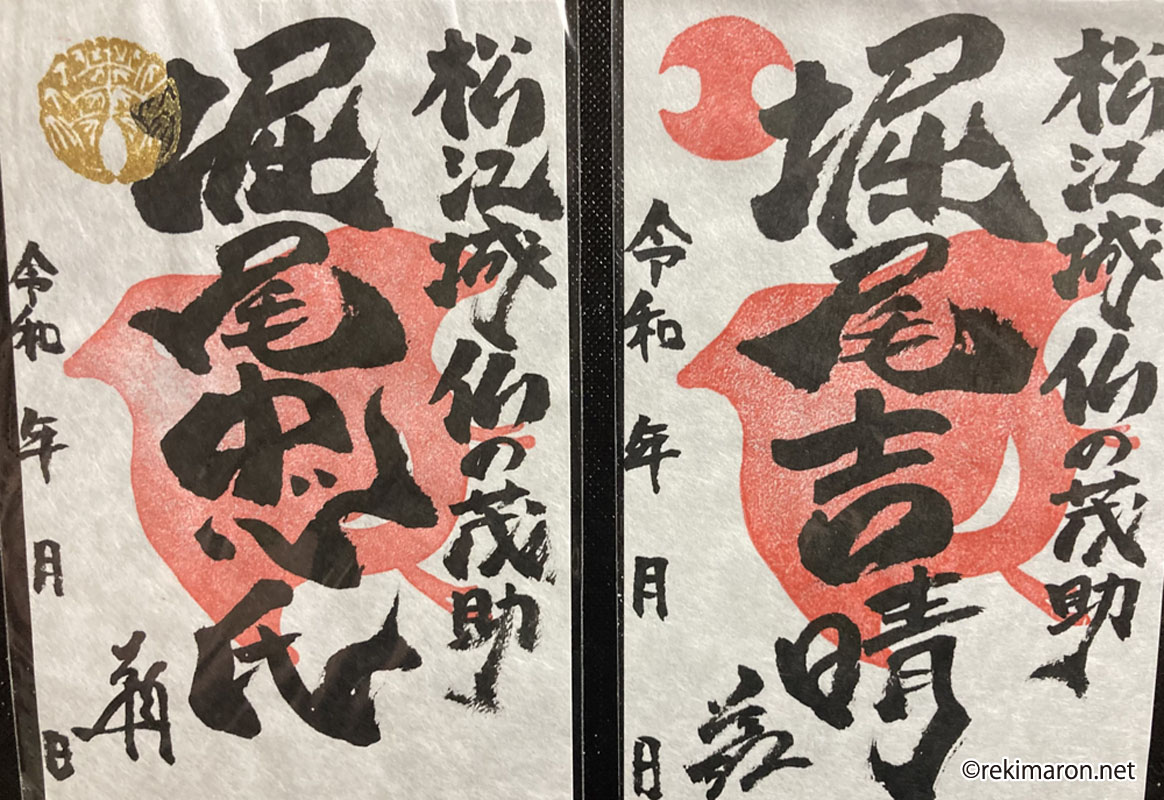 松江城 仏の茂助
堀尾吉晴
令和 年 月 日
松江城 仏の茂助
堀尾忠氏
令和 年 月 日
©rekimaron.net